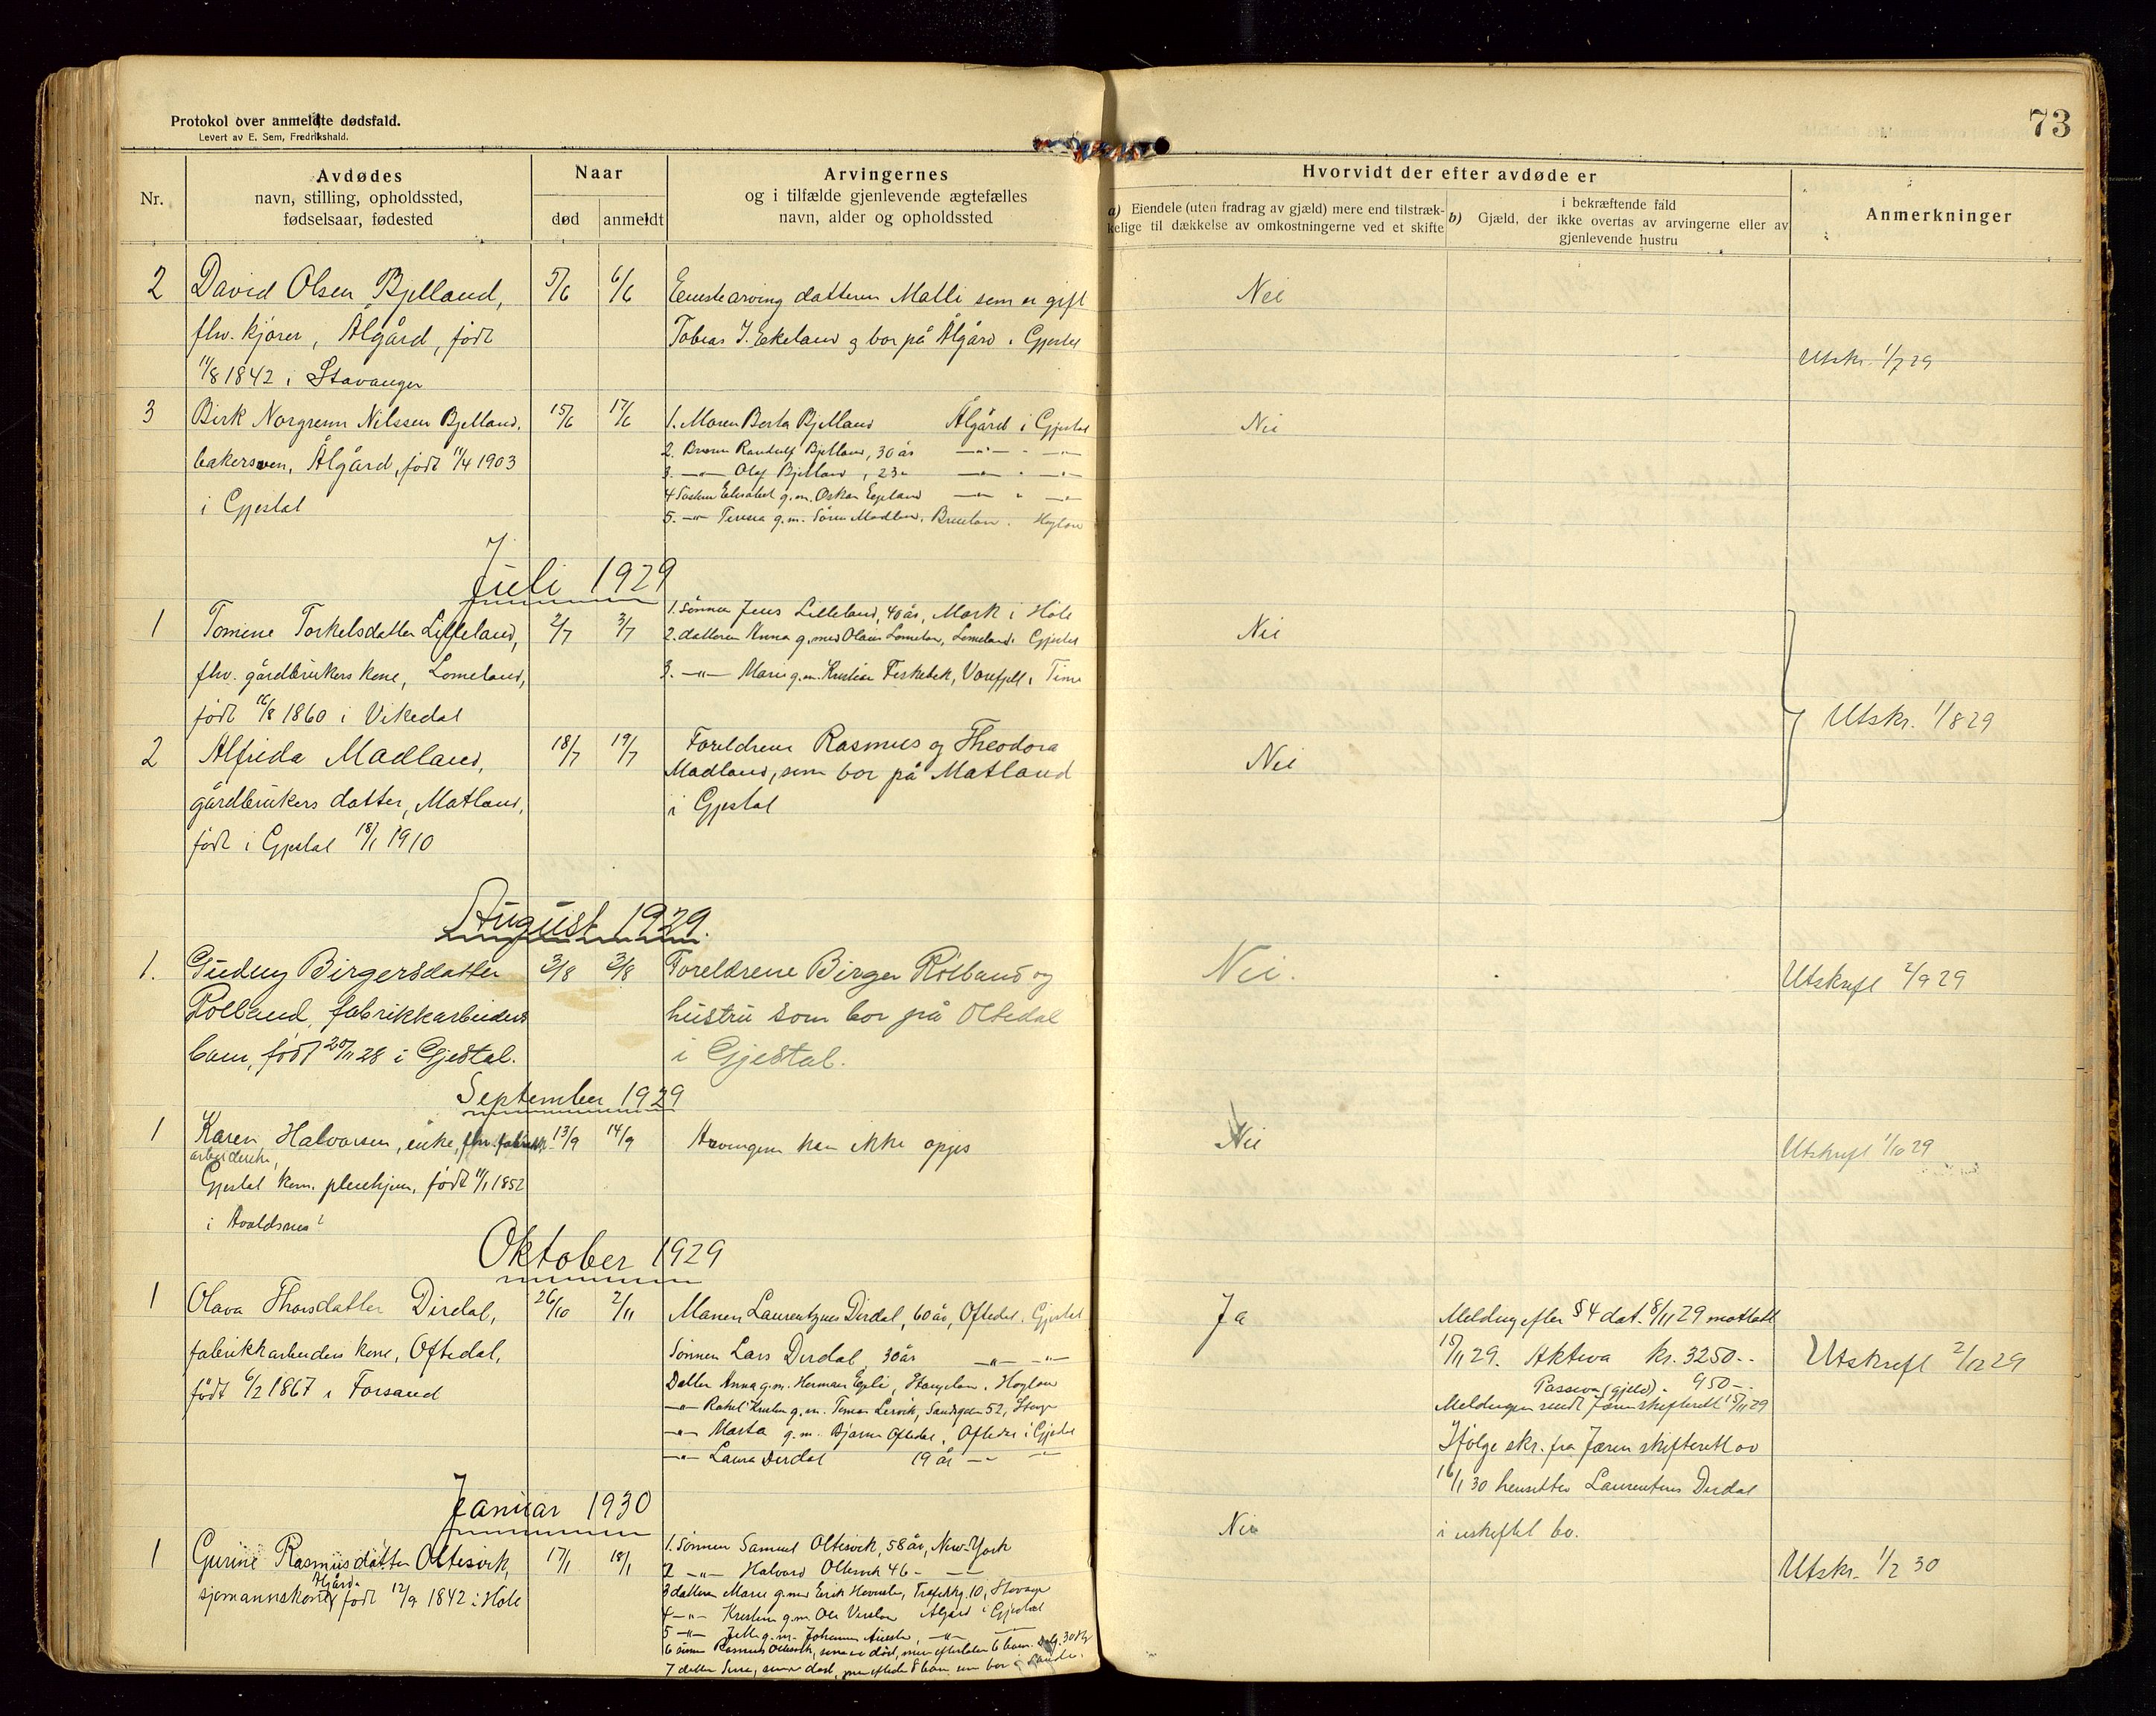 Protokol over anmeldte dødsfald.
Levert av E. Sem, Fredrikshald.
73
Nr.
Avdødes
navn, stilling, opholdssted,
fødselsaar, fødested
Naar
død
anmeldt
Arvingernes
og i tilfælde gjenlevende ægtefælles
navn, alder og opholdssted
Hvorvidt der efter avdøde er
a) Eiendele (uten fradrag av gjæld) mere end tilstræk-
kelige til dækkelse av omkostningerne ved et skifte
i bekræftende fald
b) Gjæld, der ikke overtas av arvingerne eller av
gjenlevende hustru
Anmerkninger
2 David Olsen Bjelland, 5/6 6/6 Eneste arving datteren Malli som er gift Nei
fhv. kjører, Ålgård, født Tobias J. Eikeland og bor på Ålgård i Gjestal
11/8 1842 i Stavanger Utskr. 1/7 29
3 Birk Norgrenn Nilssen Bjelland, 15/6 17/6 1. Maren Berta Bjelland Ålgård i Gjestal Nei
bakersven, Ålgård, født 11/4 1903 2. Broren Randulf Bjelland, 30 år —"— - —"—
3. —"— Olaf Bjelland, 23 " —"— - —"—
i Gjestal 4 Søsteren Elisabet g.m. Oskar —"— " —"—
5. —"— g.m. Sören
Juli 1929
1 Tomine Torkelsdatter Lilleland, 2/7 3/7 1. Sönnen Jens Lilleland, 40 år, Mork i Höle Nei
2. datteren Anna g. med Lomeland i Gjestal
fhv. gårdbrukers kone, Lomeland, 3. —"— Marie g.m. Kristian Fiskebek, i Time
født 16/8 1860 i Vikedal Utskr. 1/8 29
2 Alfrida Madland, 18/7 19/7 Foreldrene Rasmus og Theodora Nei
gårdbrukers datter, Matland, Madland, som bor på Matland
født i Gjestal 18/1 1910 i Gjestal
August 1929.
1. Gudny Birgersdatter 3/8 3/8 Foreldrene Birger Rölland og Nei. Utskrift 2/9 29
Rölland, fabrikkarbeiders hustru som bor på Oltedal
barn, født 20/11 28 i Gjestal. i Gjestal.
September 1929
1 Karen Halvorsen, enke, fhv. fabrikk- 13/9 14/9 Arvingene kan ikke opgis Nei Utskrift 1/10 29
arbeiderske,
Gjestal kom. pleiehjem, født 11/1 1852
i Avaldsnes?
Oktober 1929
1 Olava Thorsdatter Dirdal, 26/10 2/11 Mannen Laurentzius Dirdal, 60 år, Oftedal i Gjestal Ja Melding efter § 4 dat. 8/11 29 mottatt
fabrikkarbeiders kone, Oftedal, Sönnen Lars Dirdal, 30 år —"— —"— 15/11 29. Aktiva kr. 3250.- Utskrift 2/12 29
født 6/2 1867 i Forsand Datter Anna g.m. Herman
Passiva (gjeld) " 950.-
—"— Rakel Kristin g.m. Sandgaten 52, Meldingen sendt Jæren skifterett 15/11 29
—"— Marta g.m. Bjarne Oftedal, Oftedal i Gjestal Ifølge skr. fra Jæren skifterett av
—"— Laura Dirdal 19 år —"— —"— 16/1 30 hensitter Laurentzius Dirdal
i uskiftet bo.
Januar 1930
1 Gurine Rasmusdatter Oltesvik, 17/1 18/1 1. Sönnen Samuel Oltesvik, 58 år, New-York Nei
2 —"— Halvard Oltesvik 46 - —"— Utskr. 1/2 30
Ålgård.
sjømannskone, født 12/9 1842 i Höle 3 datteren Marie g. med Erik 10, Stavanger
4 —"— Kristine g.m. Ole Ålgård i Gjestal
5 —"— g.m. Johannes —"—
6 sönn Rasmus Oltesvik, som er död, men efterlater 6 barn.
7 datter som er död, men efterlater 8 barn som bor i